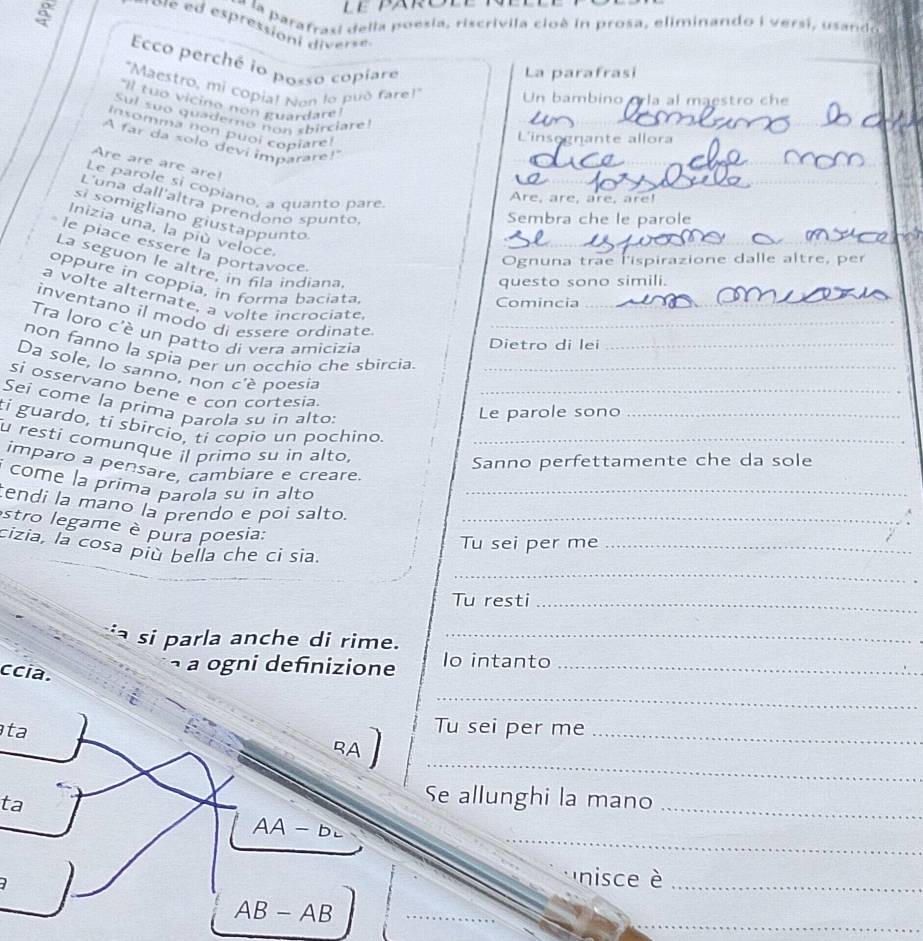 la parafrasi della poesia, riscrivila cioè in prosa, eliminando i versi, usando
ed espressioni diverse.
Ecco perché io posso copiare
"Maestro, mi copia! Non lo può fare!"
"Il tuo vicino non guardare!
Sul suo quaderno non sbirciare!
Insomma non puoi copiare!
A far da solo devi imparare!"
Are are are are!
Le parole si copiano, a quanto pare.
L'una dall'altra prendono spunto,
si somigliano giustappunto.
Inizia una, la più veloce,
le piace essere la portavoce.
La seguon le altre, in fila indiana,
oppure in coppia, in forma baciata,
a volte alternate, a volte incrociate,
inventano il modo di essere ordinate.
Tra loro c'è un patto di vera amicizia
non fanno la spia per un occhio che sbircia.
Da sole, lo sanno, non c'è poesia
si osservano bene e con cortesia.
Sei come la prima parola su in alto:
ti guardo, ti sbircio, ti copio un pochino.
u resti comunque il primo su in alto,
imparo a pensare, cambiare e creare.
come la prima parola su in alto
tendi la mano la prendo e poi salto.
stro legame è pura poesia:
cizia, la cosa più bella che ci sia.
si parla anche di rime.
a ogni definizione
ccia.
ta
BA
ta
AA –
AB – AB
La parafrasi
Un bambino al maestro che
un
L'insegnante allora
dice che non
è possibile
Are, are, are, are!
Sembra che le parole
se
Ognuna trae l'ispirazione dalle altre, per
questo sono simili.
Comincia
Dietro di lei
Le parole sono
Sanno perfettamente che da sole
Tu sei per me
Tu resti
Io intanto
Tu sei per me
Se allunghi la mano
unisce è